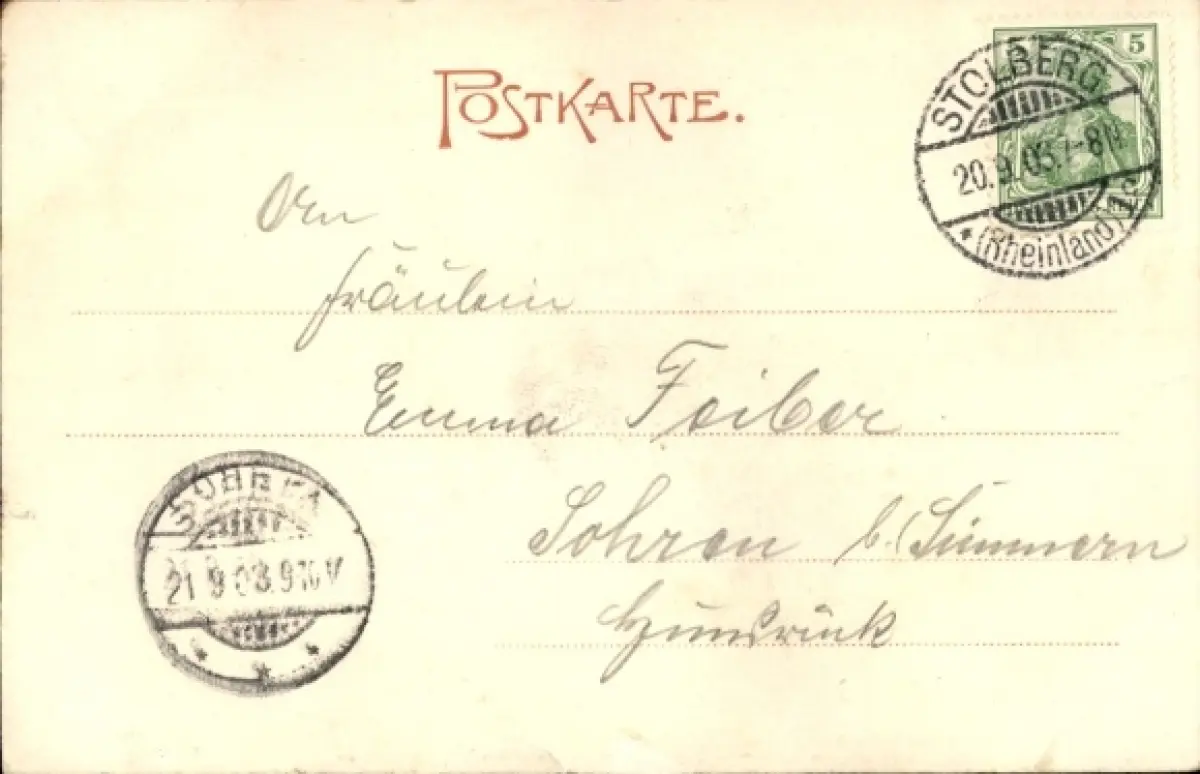 POSTKARTE.
5
STOLBERG
20.9.03.7-8N.
* (Rheinland) 1c
An
Fräulein
Emma Foiber
Sohren b. Simmern
Hunsrück
SOHREN
21 9 03.9